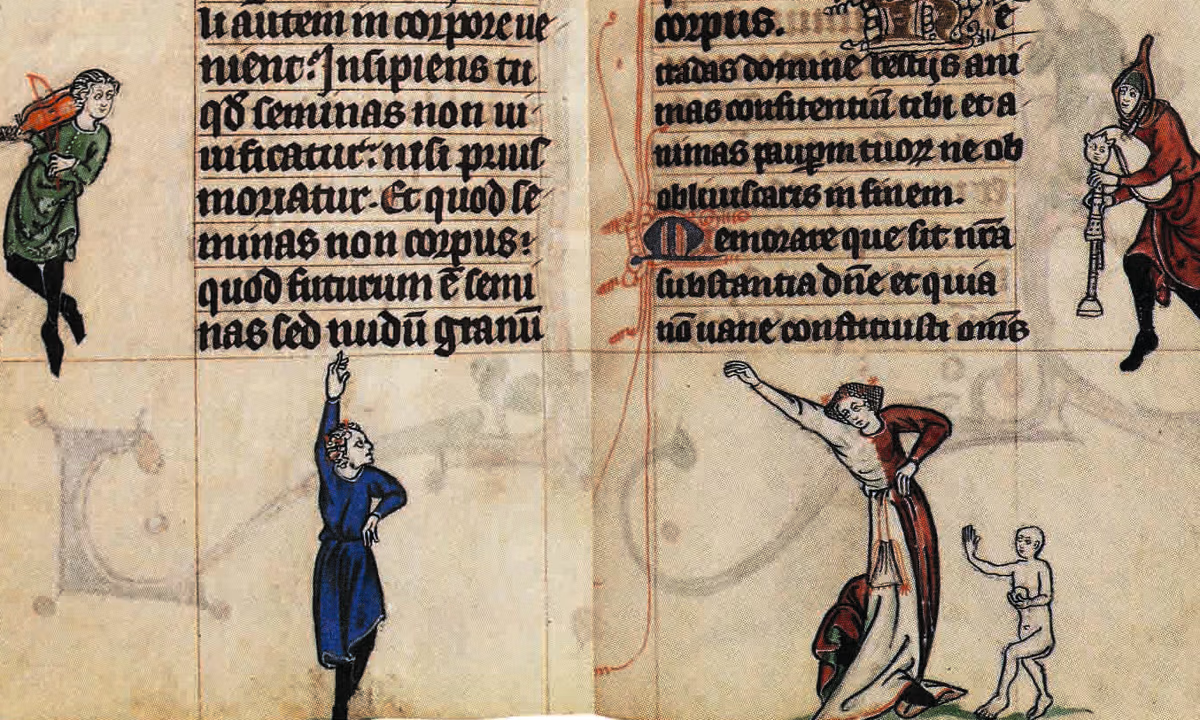 u autem in corpore ue
nient? Insipiens tu
qđ seminas non ui
uificatur: nisi prius
moriatur. Et quod se
minas non corpus:
quod futurum ē semi
nas sed nudū granū
corpus. Ne
tradas domine bestijs ani
mas confitentiū tibi et a
nimas paupm tuoꝝ ne ob
obliuiscaris in finem.
Memorare que sit nr̄a
substantia dn̄e et quia
nō uane constituisti om̄s